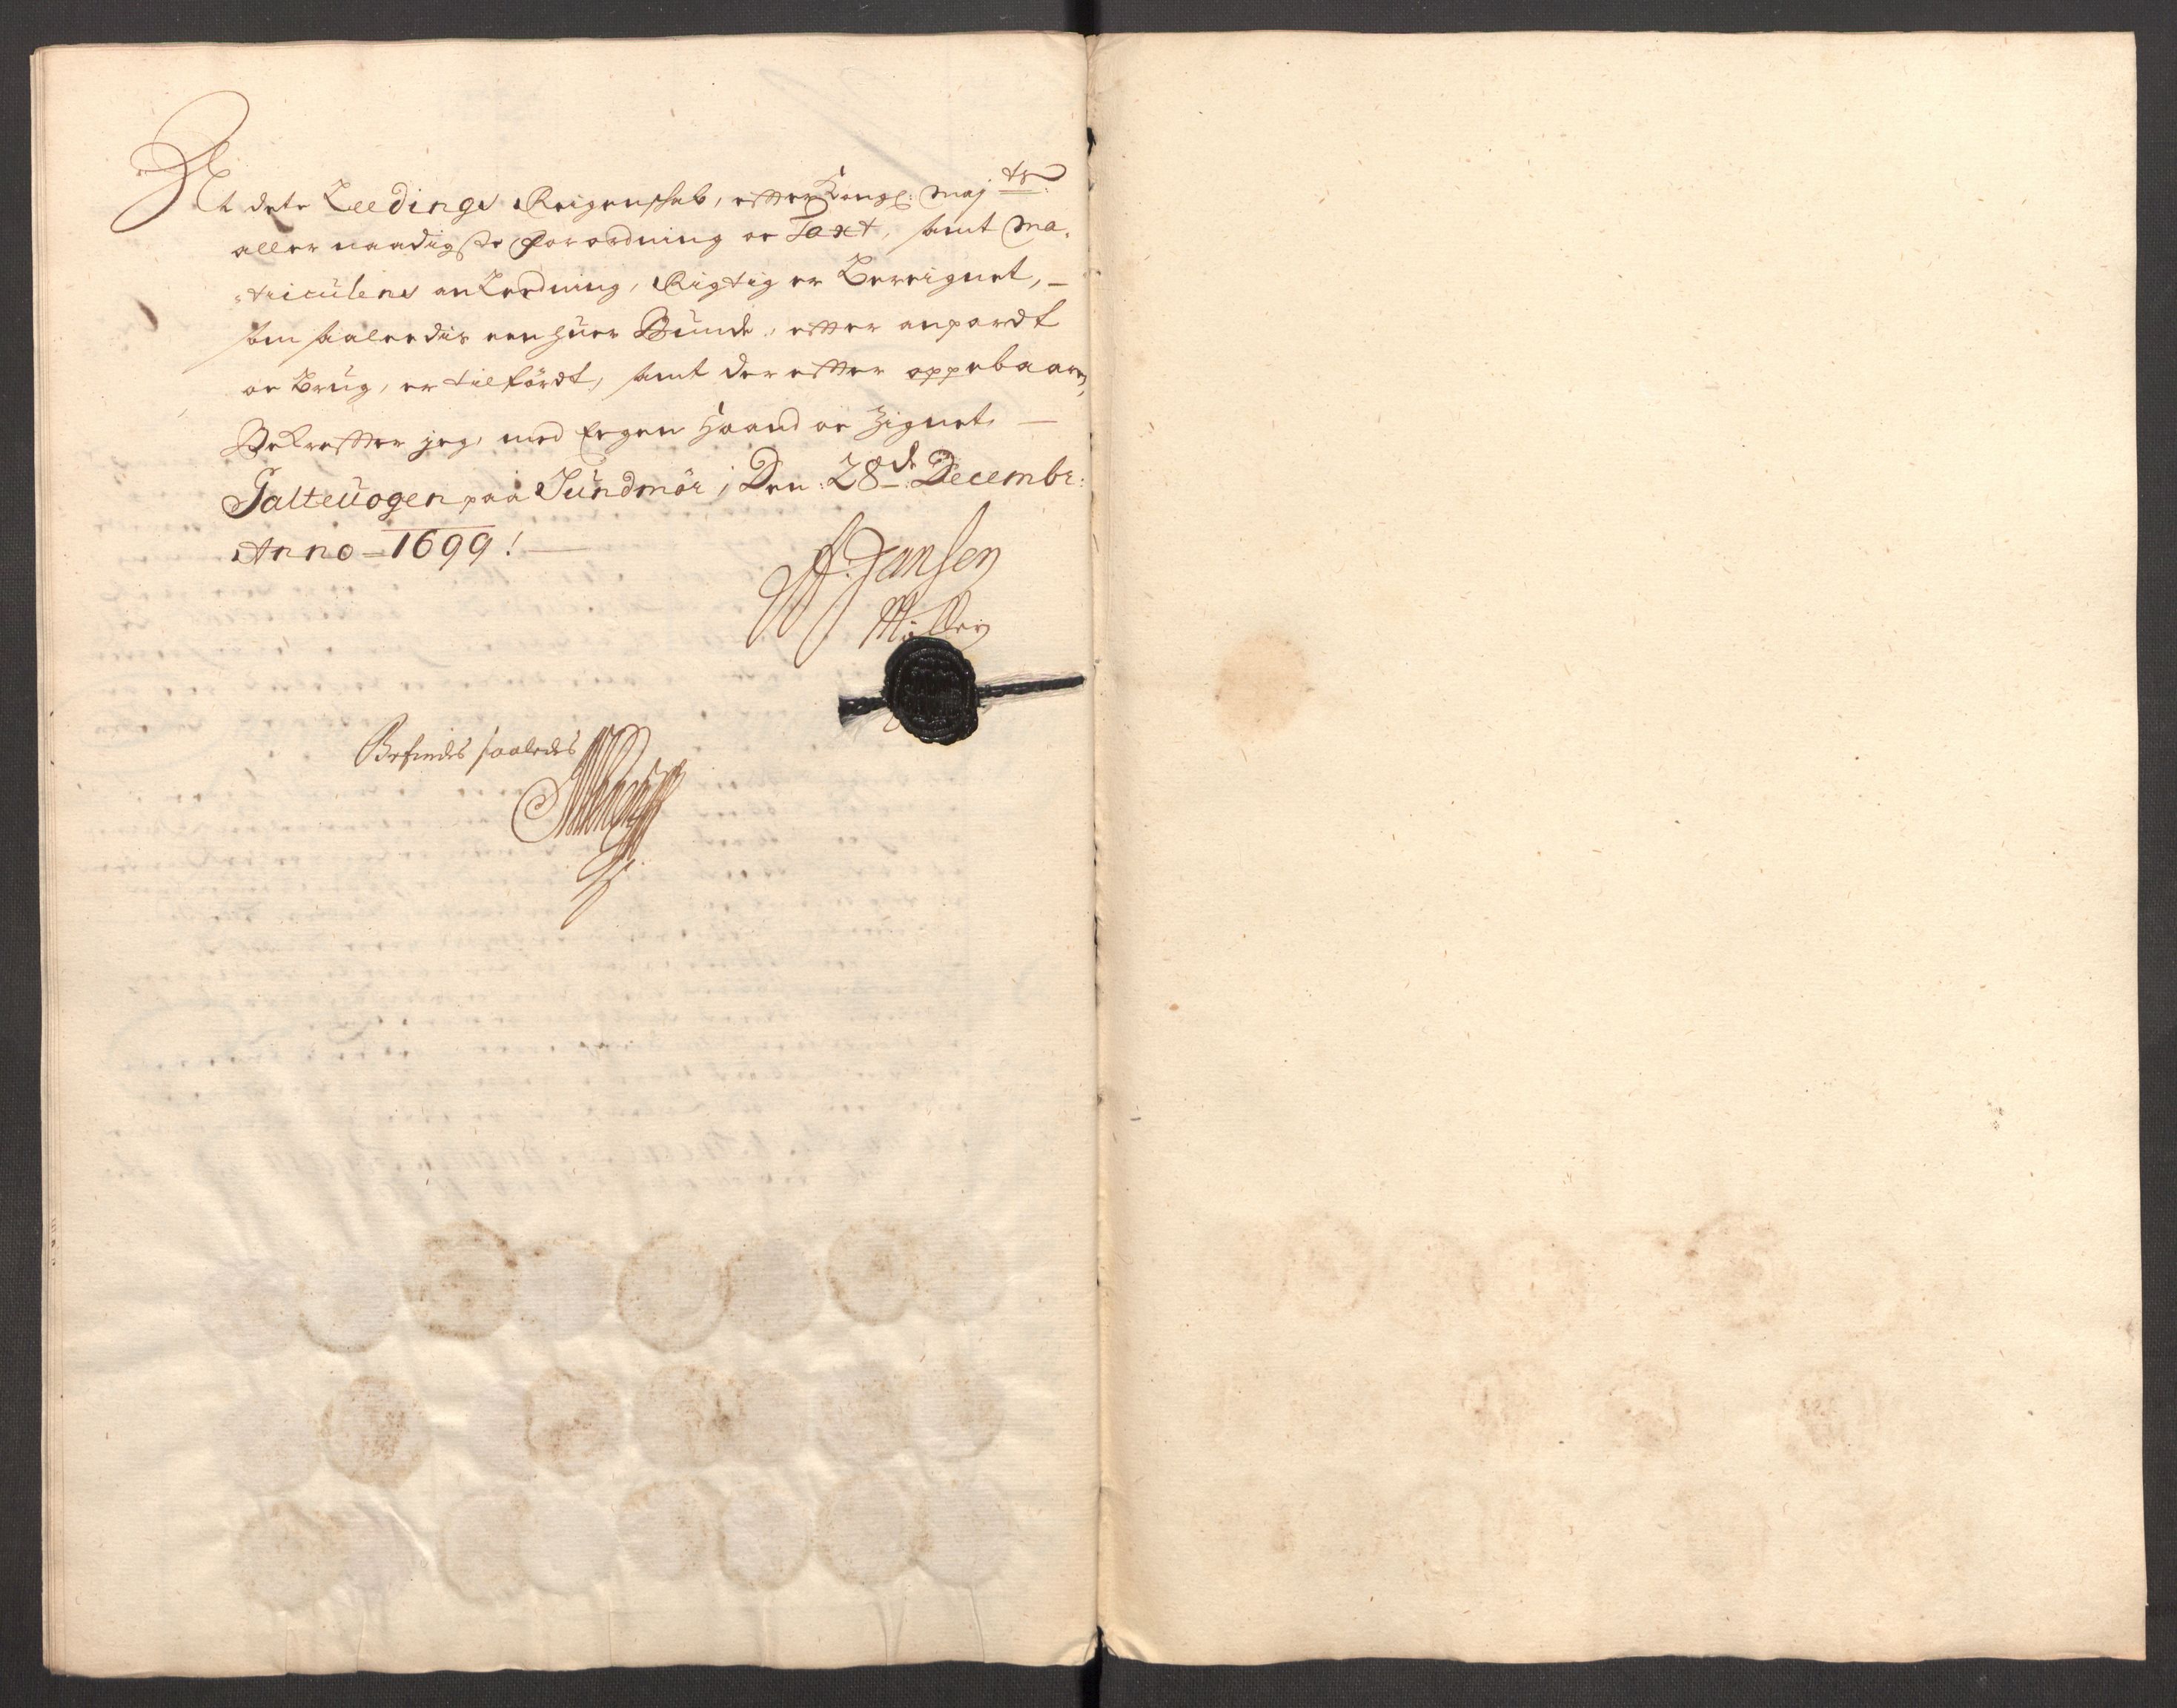 At dete Leedings Reigenskab, effter Kongl: Maj:ts
aller naadigste Forordning oc Taxt, samt Ma-
triculens anLeedning, Rigtig er Bereignet, –
som saaleedis een huer Bunde, effter anpardt
oc Brug, er tilfördt, samt der effter oppebaaren,
Bekreffter jeg, med Eegen Haand oc Zignet, –
Salteuogen paa Sundmör, Den: 28de Decembr:
Anno – 1699! –
Jansen
Möller
Befindes saaledes